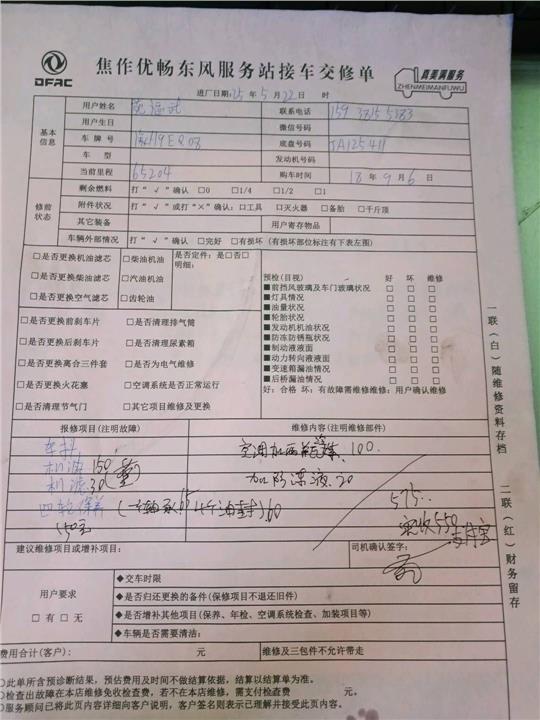 DFAC
焦作优畅东风服务站接车交修单
真美满服务
ZHENMEIMANFUWU
进厂日期:25年5月22日 时
基本信息
用户姓名
联系电话
用户生日
微信号码
车牌号
底盘号码 JA125411
车型
发动机号码
当前里程 65204
购车时间 18年9月6日
修前状态
剩余燃料 打“√”确认 □0 □1/4 □1/2 □1
附件状况 打“√”或打“×”确认:□工具 □灭火器 □备胎 □千斤顶
其它装备 用户寄存物品
车辆外部情况 打“√”确认 □完好 □有损坏(有损坏部位标注有下表左图)
□是否更换机油滤芯 □柴油机油 是否定件:是□否□
明细:
□是否更换柴油滤芯 □汽油机油
□是否更换空气滤芯 □齿轮油
□是否更换前刹车片 □是否清理排气筒
□是否更换后刹车片 □是否清理尿素箱
□是否更换离合三件套 □是否为电气维修
□是否更换火花塞 □空调系统是否正常运行
□是否清理节气门 □其它项目维修及更换
预检(目视) 好 坏 维修
■前挡风玻璃及车门玻璃状况 □ □ □
■灯具情况 □ □ □
■油量状况 □ □ □
■轮胎状况 □ □ □
■发动机机油状况 □ □ □
■防冻防锈瓶状况 □ □ □
■制动液液面 □ □ □
■动力转向液液面 □ □ □
■变速箱漏油情况 □ □ □
■后桥漏油情况 □ □ □
好:合格 坏:有故障需维修维修:用户确认维修
报修项目(注明故障) 维修内容(注明维修部件)
100.
机油 150
机滤 30
加防冻液.20
四轮保养
60
575.
实收550
150元
建议维修项目或增补项目:
司机确认签字:
用户要求
□有 □无
◆交车时限
◆是否归还更换的备件(保修项目不退还旧件)
◆是否增补其他项目(保养、年检、空调系统检查、加装项目等)
◆车辆是否需要清洁:
费用合计(客户): 元 维修及三包件不允许带走
◎此单所含预诊断结果,预估费用及时间不做结算依据,结算以结算单为准。
◎检查出故障在本店维修免收检查费,若不在本店维修,需支付检查费 元。
◎服务顾问已将此页内容详细向客户说明,客户签名则表示已理解并接受此页内容。
一联(白)随维修资料存档
二联(红)财务留存